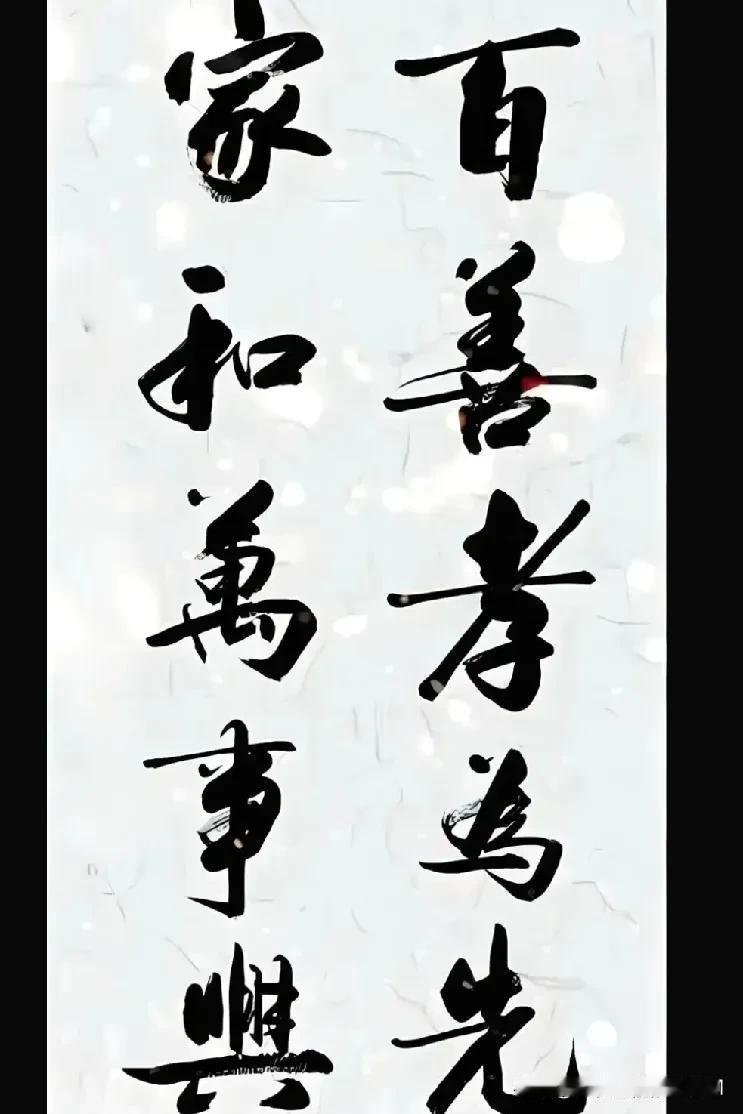 百善孝為先
家和萬事興